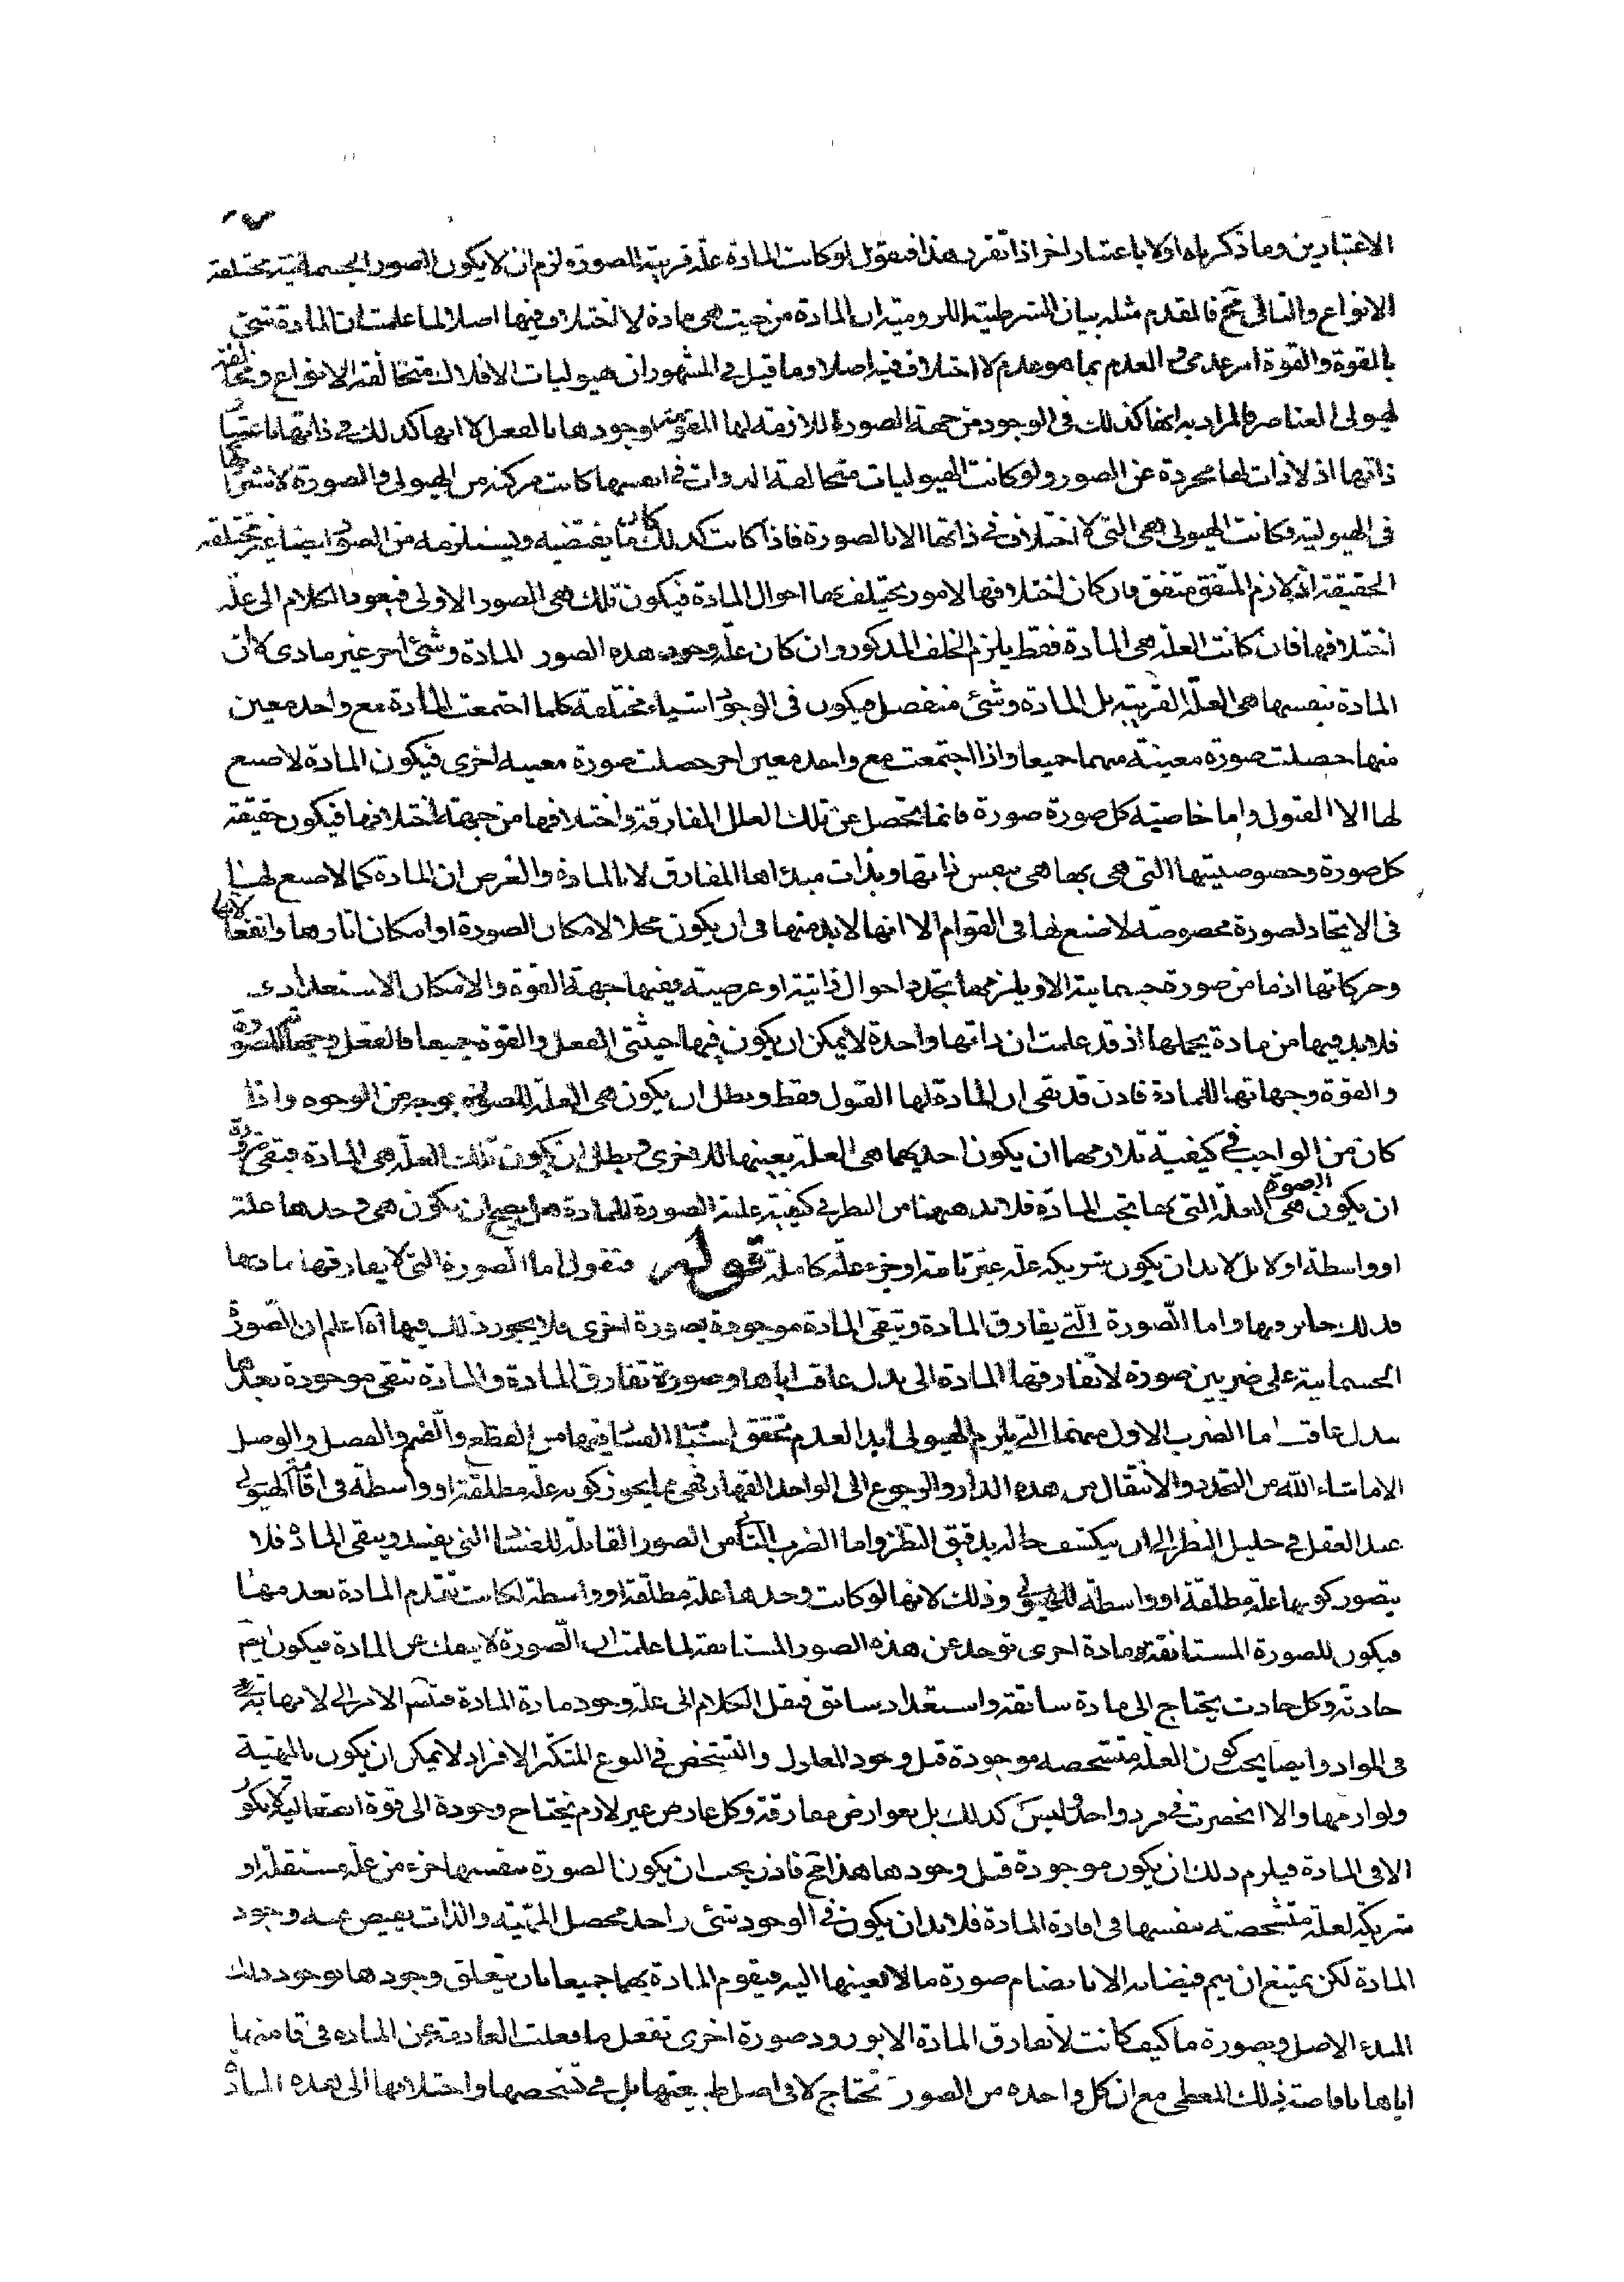 الاعتبارين وما ذكرناه اولا باعتبار اخر اذا تقرر هذا فنقول لو كانت المادة علة قريبة للصورة لزم ان لا يكون الصور الجسمانية مختلفة
الانواع والتالى مح فالمقدم مثله بيان الشرطية اللزومية ان المادة من حيث هى مادة لا اختلاف فيها اصلا لما علمت ان المادة شىء
بالقوة والقوة امر عدمى و العدم بما هو عدم لا اختلاف فيه اصلا وما قيل فى المشهور ان هيوليات الافلاك متخالفة الانواع ومخالفة
لهيولى العناصر فالمراد به انها كذلك فى الوجود من جهة الصورة اللازمة لها المقومة وجودها بالفعل لا انها كذلك فى ذاتها باعتبار
ذاتها اذ لا ذات لها مجردة عن الصور ولو كانت الهيوليات متخالفة الذوات فى انفسها كانت مركبة من الهيولى والصورة لاشتراكها
فى الهيولية فكانت الهيولى هى التى لا اختلاف فى ذاتها الا بالصورة فاذا كانت كذلك كان ما يقتضيه ويستلزمه من الصور ايضا غير مختلفة
الحقيقة اذ لازم المتفق متفق فان كان اختلافها لامور يختلف بها احوال المادة فيكون تلك هى الصور الاولى فيعود الكلام الى علة
اختلافها فان كانت العلة هى المادة فقط يلزم الخلف المذكور وان كان علة وجود هذه الصور المادة وشىء اخر غير مادى لا ان
المادة بنفسها هى العلة القريبة بل المادة وشىء منفصل فيكون فى الوجود اشياء مختلفة كلما اجتمعت المادة مع واحد معين
منها حصلت صورة معينة منهما جميعا واذا اجتمعت مع واحد معين اخر حصلت صورة معينة اخرى فيكون المادة لا صنع
لها الا القبول واما خاصية كل صورة صورة فانما تحصل عن تلك العلل المفارقة واختلافها من جهة اختلافها فيكون حقيقة
كل صورة وخصوصيتها التى هى بها هى بنفس ذاتها وبذات مبدئها المفارق لا بالمادة والغرض ان المادة كما لا صنع لها
فى الايجاد لصورة مخصوصة لا صنع لها فى القوام الا انها لا بد منها فى ان يكون محلا لامكان الصورة او امكان اثارها وانفعالاتها
وحركاتها اذ ما من صورة جسمانية الا ويلزمها تجدد احوال ذاتية او عرضية ففيها جهة القوة والامكان الاستعدادى
فلا بد فيها من مادة يحملها اذ قد علمت ان ذاتها واحدة لا يمكن ان يكون فيها حيثيتى الفعل والقوة جميعا فالفعل وجهاته للصورة
والقوة وجهاتها للمادة فاذن قد بقى ان المادة لها القبول فقط وبطل ان يكون هى العلة للصورة بوجه من الوجوه واذا
كان من الواجب فى كيفية تلازمهما ان يكون احديهما هى العلة بعينها للاخرى و بطل ان يكون تلك العلة هى المادة فبقى ضرورة
ان يكون الصورة هى العلة التى بها تجب المادة فلا بد ههنا من النظر فى كيفية علية الصورة للمادة هل يصح ان يكون هى وحدها علة
او واسطة اولا بل لا بد ان يكون شريكة علة غير تامة او جزء علة كاملة قوله فنقول اما الصورة التى لا يفارقها مادتها
فذلك جايز فيها واما الصورة التى يفارق المادة وتبقى المادة موجودة بصورة اخرى فلا يجوز ذلك فيها اه اعلم ان الصورة
الجسمانية على ضربين صورة لا تفارقها المادة الى بدل عاقب اياها وصورة تفارق المادة والمادة تبقى موجودة بعدها
ببدل عاقب اما الضرب الاول منهما التى يلزم الهيولى ابدا لعدم تحقق اسباب الفساد فيها من القطع والضم والفصل والوصل
الا ما شاء الله من التجدد والانتقال من هذه الدار والرجوع الى الواحد القهار فهى مما يجوز كونه علة مطلقة او واسطة فى اقامة الهيولى
عند العقل فى جليل النظر الى ان ينكشف حاله بدقيق النظر واما الضرب الثانى من الصور القابلة للفساد التى يفسد ويبقى المادة فلا
يتصور كونها علة مطلقة او واسطة للهيولى وذلك لانها لو كانت وحدها علة مطلقة او واسطة لكانت تنعدم المادة بعدمها
فيكون للصورة المستانفة مادة اخرى توجد عن هذه الصور المستانفة لما علمت ان الصورة لا ينفك عن المادة فيكون ايضا
حادثة وكل حادث يحتاج الى مادة سابقة واستعداد سابق فينقل الكلام الى علة وجود مادة المادة فتسلسل الامر الى لا نهاية
فى المواد وايضا يجب كون العلة متشخصة موجودة قبل وجود المعلول والتشخص فى النوع المتكثر الافراد لا يمكن ان يكون بالمهية
ولوازمها والا انحصرت فى فرد واحد وليس كذلك بل بعوارض مفارقة وكل عارض غير لازم يحتاج وجوده الى قوة انفعالية لا يكون
الا فى المادة فيلزم ذلك ان يكون موجودة قبل وجودها هذا مح فاذن يجب ان يكون الصورة بنفسها جزء من علة مستقلة او
شريكة لعلة متشخصة بنفسها فى افادة المادة فلا بد ان يكون فى الوجود شىء واحد محصل المهية والذات يفيض عنه وجود
المادة لكن يمتنع ان يتم فيضانه الا بانضمام صورة ما لا بعينها اليه فيقوم المادة بهما جميعا بان يتعلق وجودها بوجود ذلك
المبدء الاصل وبصورة ما كيف كانت لا تفارق المادة الا بورود صورة اخرى تفعل ما فعلت العادمة عن المادة فى اقامتها
اياها بافاضة ذلك المعطى مع ان كل واحدة من الصور تحتاج لا فى اصل طبيعتها بل فى تشخصها واختلافها الى هذه المادة